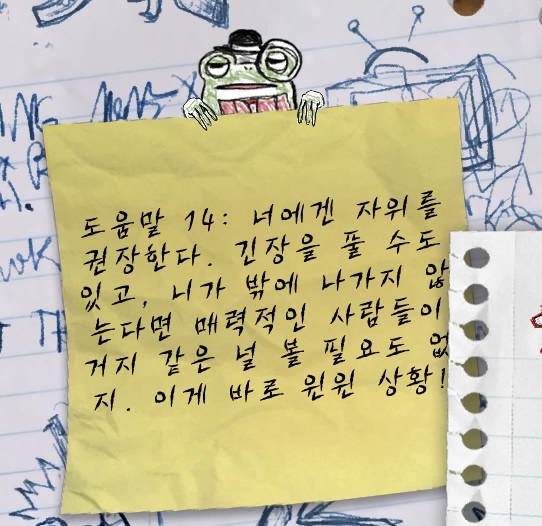 도움말 14: 너에겐 자위를
권장한다. 긴장을 풀 수도
있고, 니가 밖에 나가지 않
는다면 매력적인 사람들이
거지 같은 널 볼 필요도 없
지. 이게 바로 윈윈 상황!